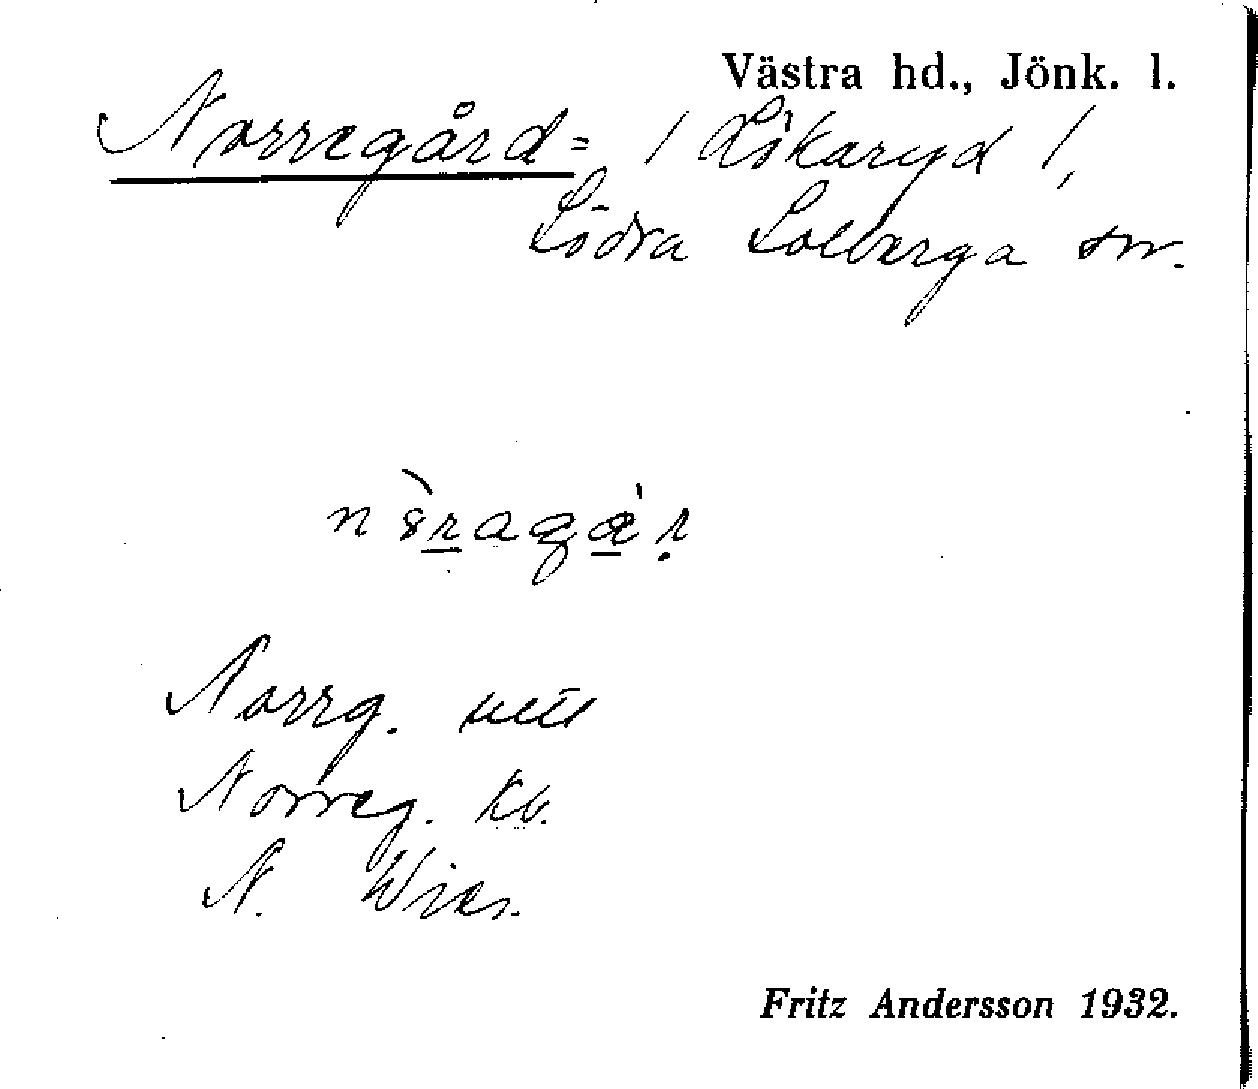 Västra hd., Jönk. l.
Norregård = / Lökaryd /,
Södra Solberga sn.
Norrg.
Norreg. kb.
N. Wies.
Fritz Andersson 1932.